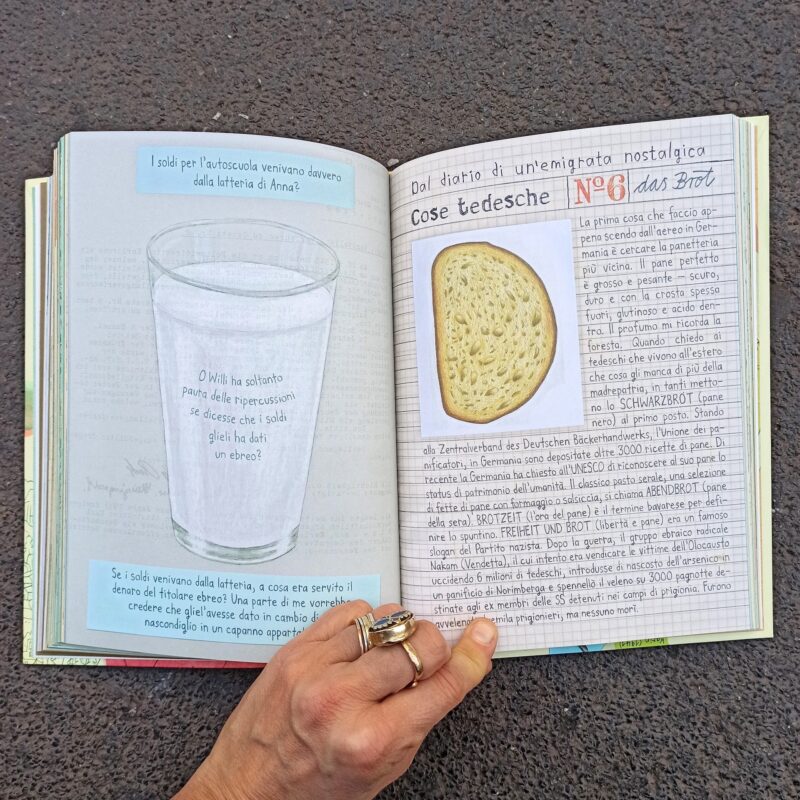 I soldi per l'autoscuola venivano davvero
dalla latteria di Anna?
O Willi ha soltanto
paura delle ripercussioni
se dicesse che i soldi
glieli ha dati
un ebreo?
Se i soldi venivano dalla latteria, a cosa era servito il
denaro del titolare ebreo? Una parte di me vorrebbe
credere che gliel'avesse dato in cambio di
nascondiglio in un capanno
Dal diario di un'emigrata nostalgica
Cose tedesche
Nº6
das Brot
La prima cosa che faccio ap-
pena scendo dall'aereo in Ger-
mania è cercare la panetteria
più vicina. Il pane perfetto
è grosso e pesante – scuro,
duro e con la crosta spessa
fuori, glutinoso e acido den-
tro. Il profumo mi ricorda la
foresta. Quando chiedo ai
tedeschi che vivono all'estero
che cosa gli manca di più della
madrepatria, in tanti metto-
no lo SCHWARZBROT (pane
nero) al primo posto. Stando
alla Zentralverband des Deutschen Bäckerhandwerks, l'Unione dei pa-
nificatori, in Germania sono depositate oltre 3000 ricette di pane. Di
recente la Germania ha chiesto all'UNESCO di riconoscere al suo pane lo
status di patrimonio dell'umanità. Il classico pasto serale, una selezione
di fette di pane con formaggio o salsiccia, si chiama ABENDBROT (pane
della sera). BROTZEIT (l'ora del pane) è il termine bavarese per defi-
nire lo spuntino. FREIHEIT UND BROT (libertà e pane) era un famoso
slogan del Partito nazista. Dopo la guerra, il gruppo ebraico radicale
Nakam (Vendetta), il cui intento era vendicare le vittime dell'Olocausto
uccidendo 6 milioni di tedeschi, introdusse di nascosto dell'arsenico in
un panificio di Norimberga e spennellò il veleno su 3000 pagnotte de-
stinate agli ex membri delle SS detenuti nei campi di prigionia. Furono
prigionieri, ma nessuno morì.